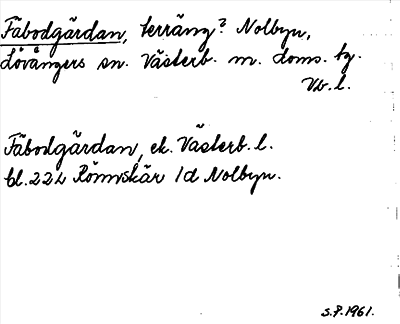 Fäbodgärdan, terräng? Nolbyn,
Lövångers sn. Västerb. m. doms. tg.
Vb. l.
Fäbodgärdan, ek. Västerb. l.
bl. 22L Rönnskär 1d Nolbyn.
S.P. 1961.